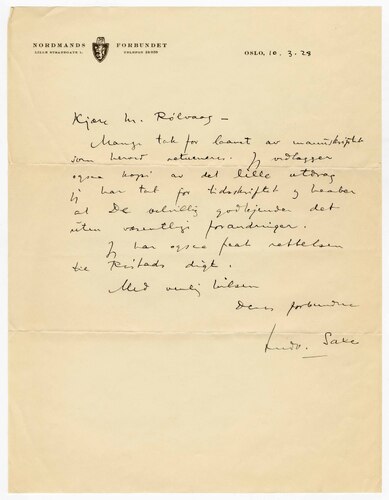 NORDMANDS FORBUNDET
OSLO, 10.3.28
Kjære Mr. Rølvaag –
Mange tak for laanet av manuskriptet
som herved returneres. Jeg vedlægger
ogsaa kopi av det lille utdrag
jeg har tat for tidsskriftet og haaber
at De velvillig godkjender det
uten væsentlige forandringer.
Jeg har ogsaa faat rettelsen
til digt.
Med venlig hilsen
Deres forbundne
Ludv. Saxe